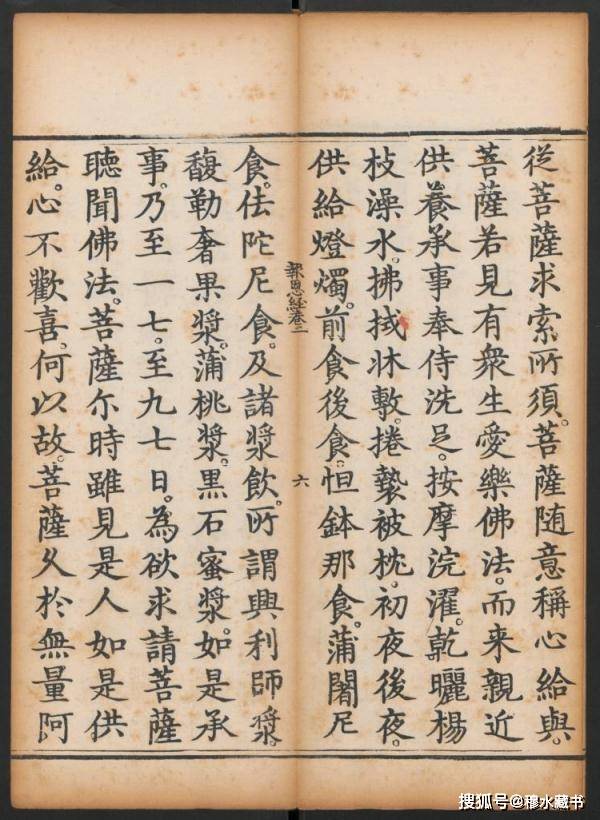 從菩薩求索所須。菩薩随意稱心給與。
菩薩若見有衆生愛樂佛法。而来親近
供養承事奉侍洗足。按摩浣濯。乾曬楊
枝澡水。拂拭牀敷。捲褺被枕。初夜後夜。
供給燈燭。前食後食。怛鉢那食。蒲闍尼
報恩經卷二
六
食。佉陀尼食。及諸漿飲。所謂興利師漿。
馥勒奢果漿。蒲桃漿。黒石蜜漿。如是承
事。乃至一七。至九七日。為欲求請菩薩
聽聞佛法。菩薩尒時雖見是人如是供
給。心不歡喜。何以故。菩薩久於無量阿
搜狐号@穆水藏书